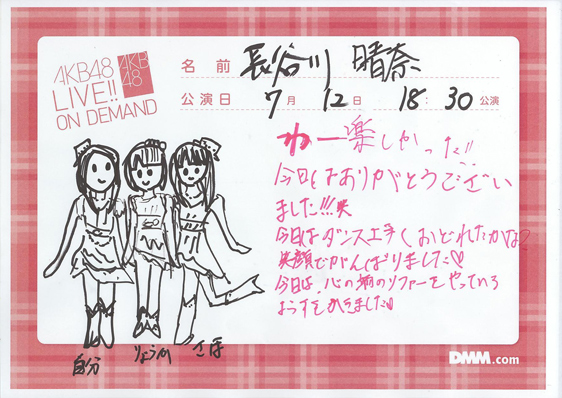 AKB48
LIVE!!
ON DEMAND
AKB
48
名前 長谷川 晴奈
公演日 7月12日 18:30公演
わー楽しかった!!
今日はありがとうございい
ました!!!笑
今日はダンス上手くおどれたかな?
笑顔でがんばりました♡
今日は、心の端のソファーをやっている
ようすをかきました♡
自分 りょうか さほ
DMM.com